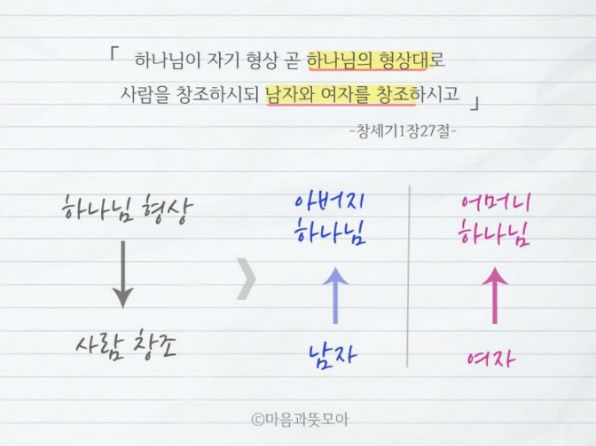 「 하나님이 자기 형상 곧 하나님의 형상대로
사람을 창조하시되 남자와 여자를 창조하시고 」
-창세기1장27절-
하나님 형상
사람 창조
아버지
하나님
남자
어머니
하나님
여자
©마음과뜻모아